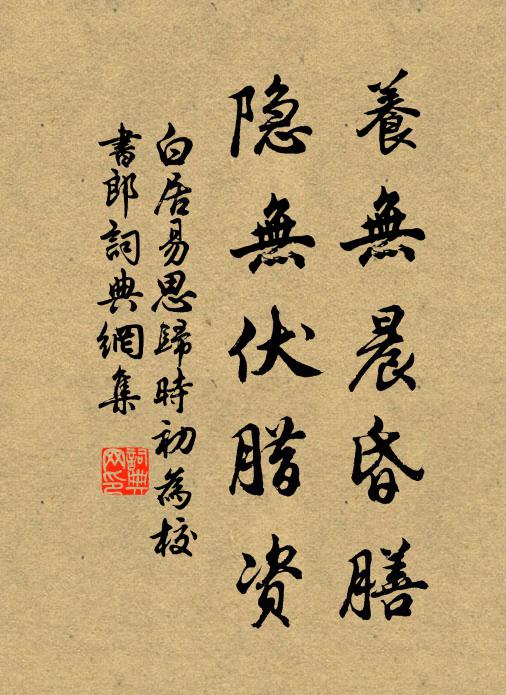 養無晨昏膳
隐無伏腊资
白居易思歸時初為校
書郎詞典網集
詞典
网印